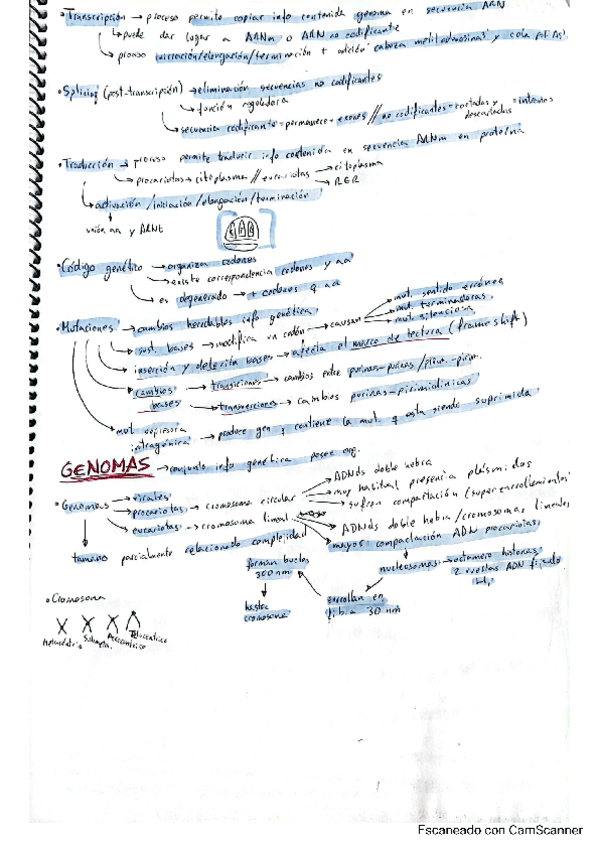 • Transcripción → proceso permite copiar info contenida genoma en secuencia ARN
↳ puede dar lugar a ARNm o ARN no codificante
↳ proceso iniciación/elongación/terminación + adición cabeza metil adenosinas y cola poli A
• Splicing (post-transcripción) → eliminación secuencias no codificantes
↳ función reguladora
↳ secuencia codificante = permanece = exones // no codificantes = cortadas y descartadas = intrones
• Traducción → proceso permite traducir info contenida en secuencia ARNm en proteína
↳ procariotas → citoplasma // eucariotas → citoplasma
→ RER
↳ activación/iniciación/elongación/terminación
unión aa y ARNt
• Código genético → organiza codones
↳ existe correspondencia codones y aa
↳ es degenerado → + codones q aa
• Mutaciones → cambios heredables info genética
→ sust. bases → modifica un codón → causan
mut. sentido erróneo
mut. terminadoras
mut. silenciosa
→ inserción y deleción bases → afecta el marco de lectura (frameshift)
→ cambios bases → transiciones → cambios entre purinas-purinas / pirim.-pirim.
→ transversiones → cambios purinas-pirimidínicas
→ mut supresora intragénica → produce gen q contiene la mut. q esta siendo suprimida
GENOMAS → conjunto info genética posee org.
• Genomas → virales
→ procariotas → cromosoma circular
→ ADNds doble hebra
→ muy habitual presencia plásmidos
→ sufren compactación (superenrollamientos)
→ eucariotas → cromosoma lineal
→ ADNds doble hebra/cromosomas lineales
→ mayor compactación ADN procariotas
tamaño parcialmente relacionado complejidad
nucleosomas → octámero histonas
2 vueltas ADN fijado H1
enrollan en fibra 30 nm
forman bucles 300 nm
hasta cromosoma
• Cromosoma
Metacéntrico Submeta. Acrocéntrico Telocéntrico
Escaneado con CamScanner